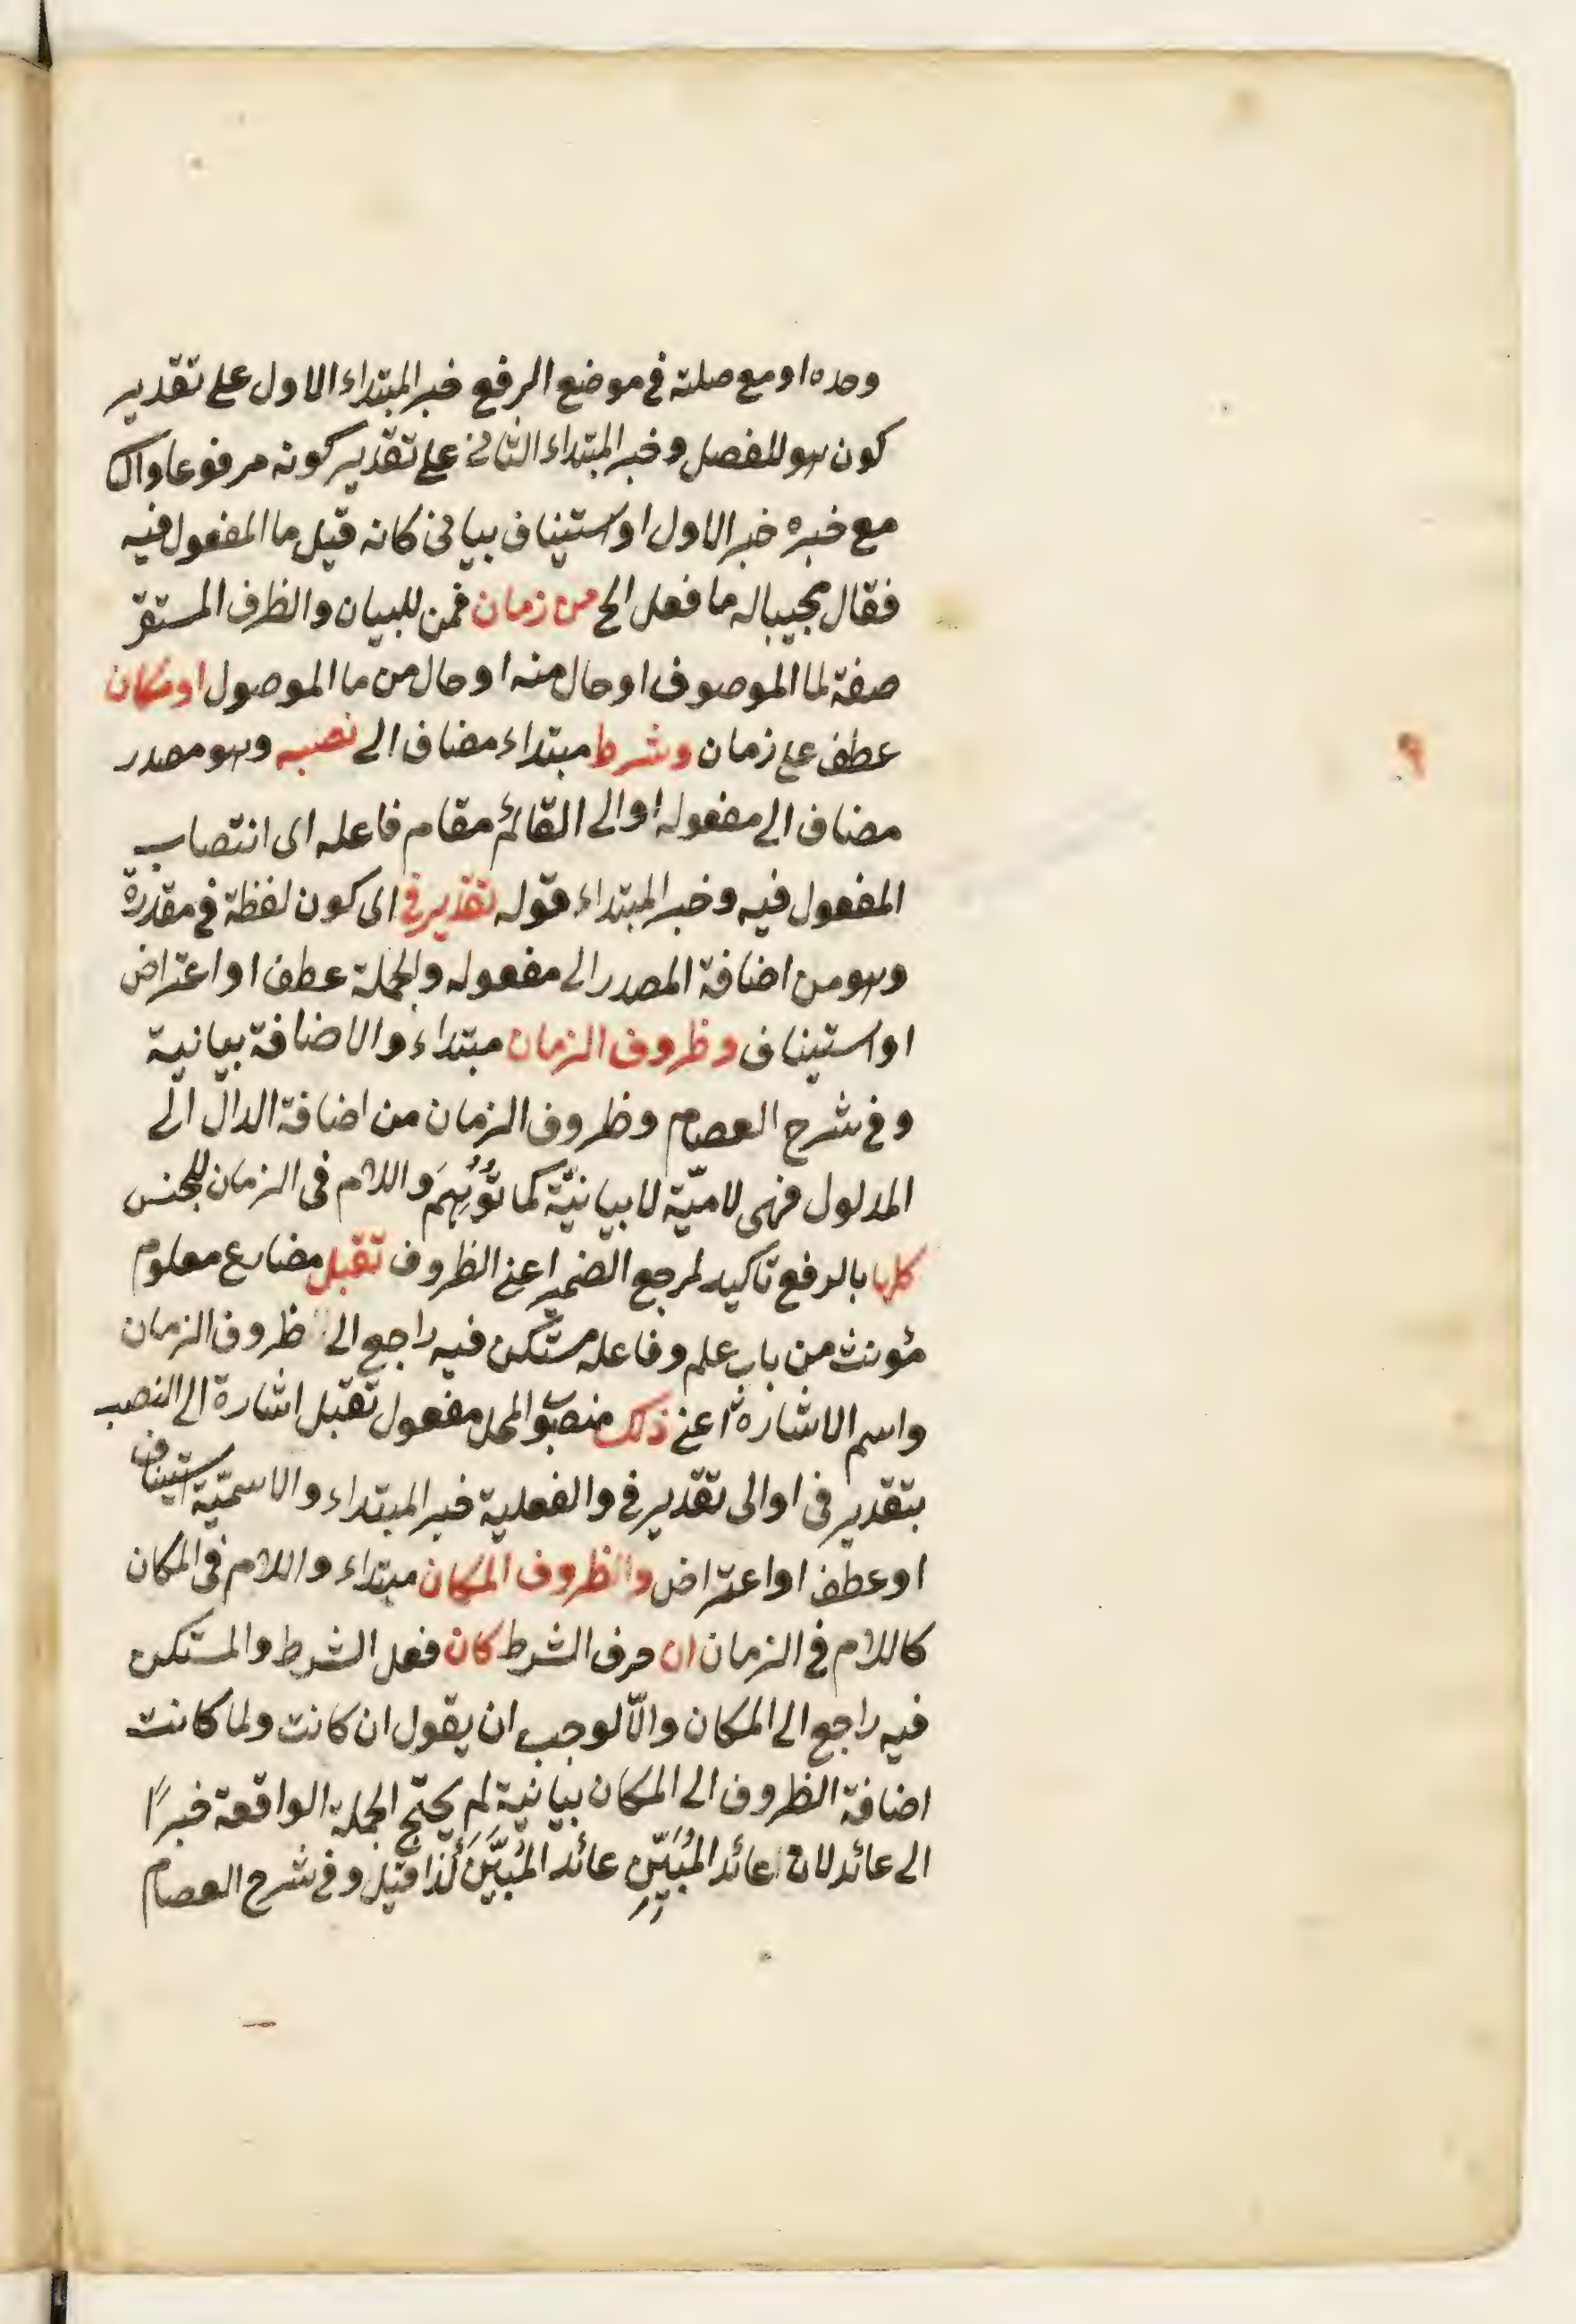 وحده او مع صلته في موضع الرفع خبر المبتداء الاول على تقدير
كون هو للفصل وخبر المبتداء الثاني على تقدير كونه مرفوعا والثا
مع خبره خبر الاول او استيناف بياني كانه قيل ما المفعول فيه
فقال مجيبا له ما فعل الخ من زمان فمن للبيان والظرف المستقر
صفة لما الموصوف او حال منه او حال من ما الموصول او مكان
عطف على زمان وشرط مبتداء مضاف الى نصبه وهو مصدر
مضاف الى مفعوله او الى القائم مقام فاعله اى انتصاب
المفعول فيه وخبر المبتداء قوله تقدير في اى كون لفظة في مقدرة
وهو من اضافة المصدر الى مفعوله والجملة عطف او اعتراض
او استيناف وظروف الزمان مبتداء والاضافة بيانية
وفي شرح العصام وظروف الزمان من اضافة الدالّ الى
المدلول فهى لاميّة لا بيانيّة كما تُوُهِّمَ واللام فى الزمان للجنس
كلها بالرفع تاكيد لمرجع الضمير اعنى الظروف تقبل مضارع معلوم
مؤنث من باب علم وفاعله مستكن فيه راجع الى ظروف الزمان
واسم الاشارة اعنى ذلك منصوب المحل مفعول تقبل اشارة الى النصب
بتقدير فى او الى تقدير فى والفعلية خبر المبتداء والاسميّة استيناف
او عطف او اعتراض والظروف المكان مبتداء واللام فى المكان
كاللام في الزمان ان حرف الشرط كان فعل الشرط والمستكن
فيه راجع الى المكان والّا لوجب ان يقول ان كانت ولما كانت
اضافة الظروف الى المكان بيانية لم يحتج الجملة الواقعة خبرًا
الى عائد لان عائد المُبَيِّنِ عائد المُبَيَّنِ كذا قيل وفي شرح العصام
٩